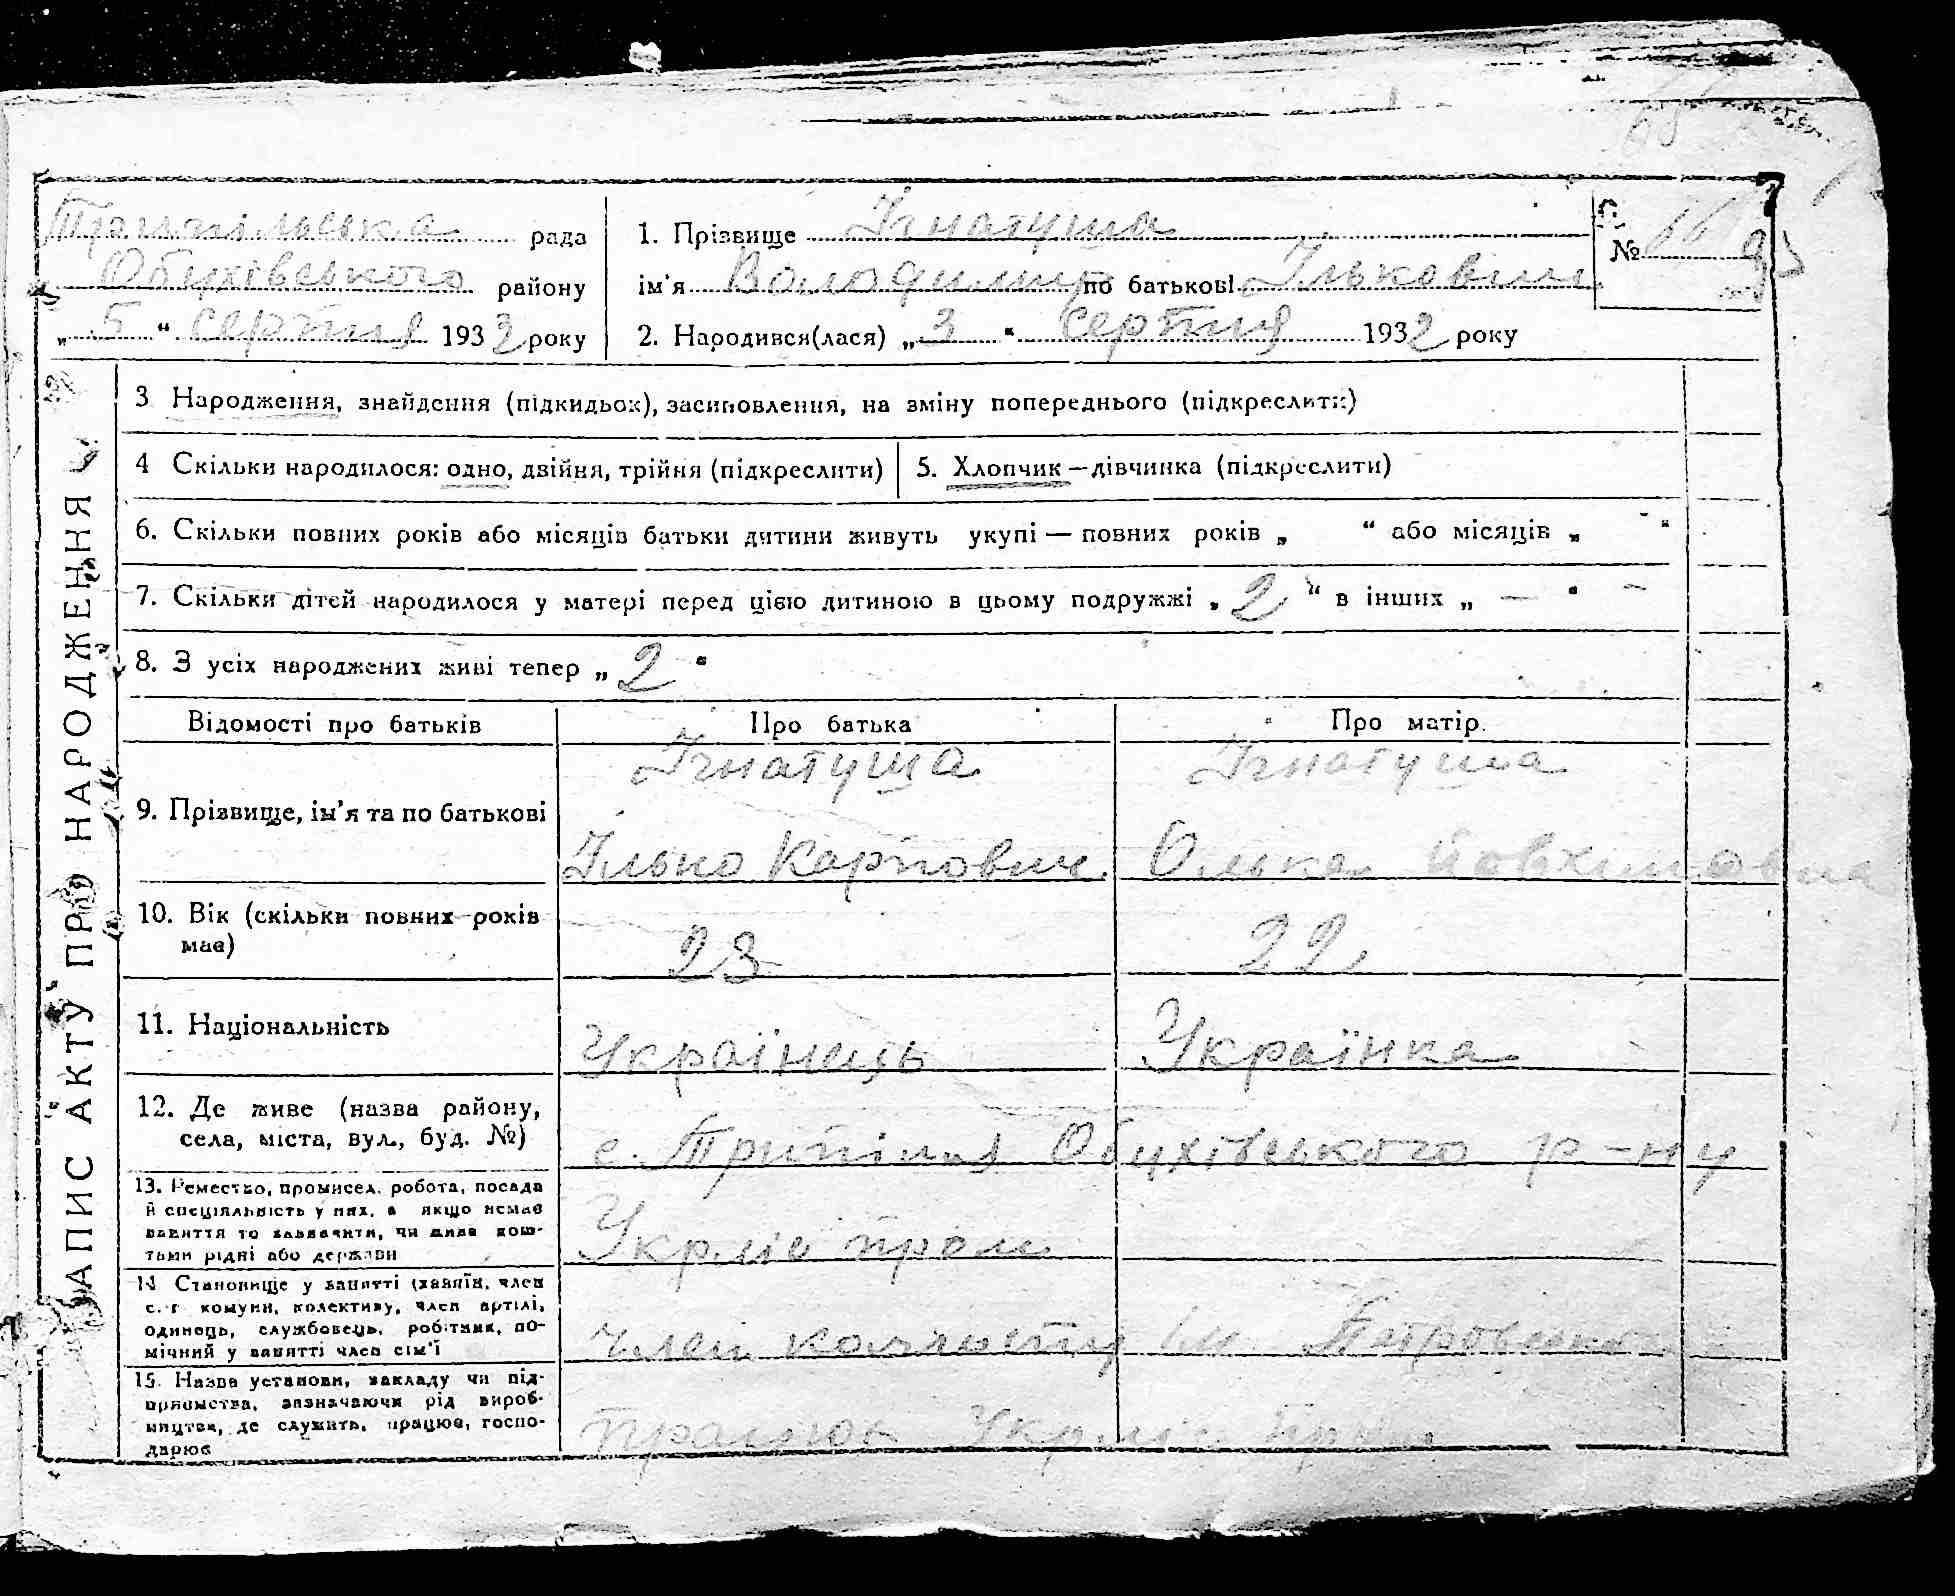 Трипільська рада
Обухівського району
„ 5 “ серпня 1932 року
1. Прізвище Ігнатуша
ім'я Володимир по батькові Ількович
2. Народився(лася) „ 3 “ серпня 1932 року
№
ЗАПИС АКТУ ПРО НАРОДЖЕННЯ
3 Народження, знайдення (підкидьок), засиновлення, на зміну попереднього (підкреслити)
4 Скільки народилося: одно, двійня, трійня (підкреслити)
5. Хлопчик—дівчинка (підкреслити)
6. Скільки повних років або місяців батьки дитини живуть укупі — повних років „ “ або місяців „ “
7. Скільки дітей народилося у матері перед цією дитиною в цьому подружжі „ 2 “ в інших „ — “
8. З усіх народжених живі тепер „ 2 “
Відомості про батьків Про батька Про матір.
9. Прізвище, ім'я та по батькові
Ігнатуша Ігнатуша
Ілько Карпович Олька Йовхимовна
10. Вік (скільки повних років
має)
23 22
11. Національність
Українець Українка
12. Де живе (назва району,
села, міста, вул., буд. №)
с. Трипілля Обухівського р-ну
13. Ремество, промисел, робота, посада
й спеціяльність у них, а якщо немає
заняття то зазначити, чи живе кош-
тами рідні або держави
Укрліспром
14 Становище у занятті (хазяїн, член
с.-г комуни, колективу, член артілі,
одинець, службовець, робітник, по-
мічний у занятті член сім'ї
член колгоспу ім Петровського
15. Назва установи, закладу чи під-
приємства, зазначаючи рід вироб-
ництва, де служить, працює, госпо-
дарює
працює Укрліспром